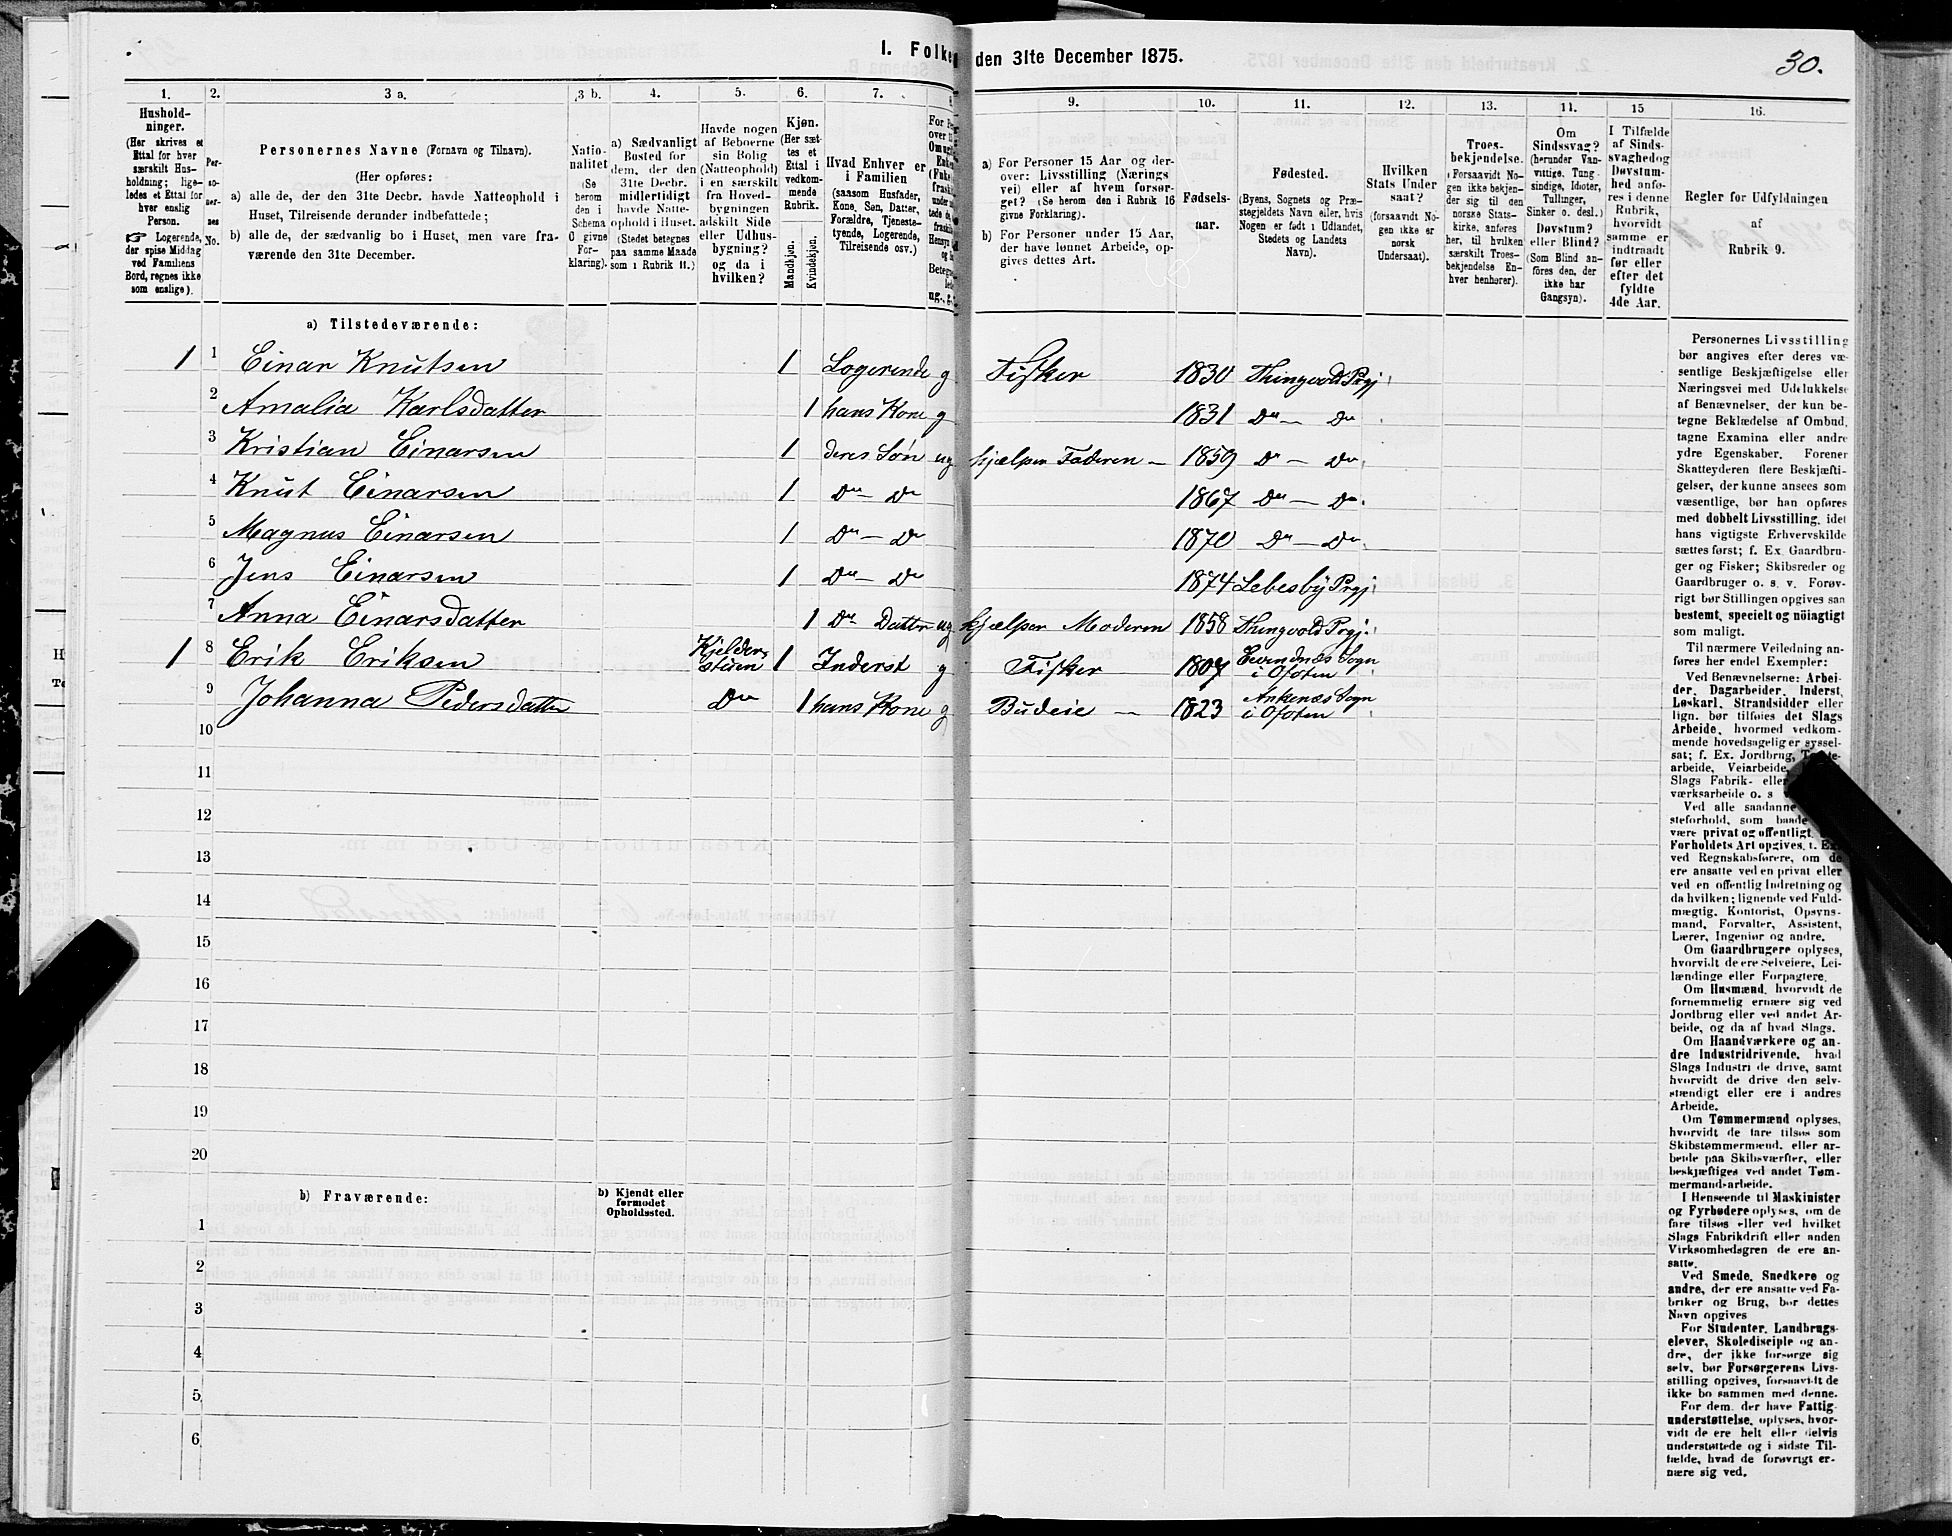 I. Folke
den 31te December 1875.
30.
1.
2.
3 a.
3 b.
4.
5.
6.
7.
8
9.
10.
11.
12.
13.
14.
15
16.
Hushold-
ninger.
(Her skrives et
Ettal for hver
særskilt Hus-
holdning; lige-
ledes et Ettal for
hver enslig
Person.
☞ Logerende,
der spise Middag
ved Familiens
Bord, regnes ikke
som enslige).
Per-
so-
ner-
nes
No.
Personernes Navne (Fornavn og Tilnavn).
(Her opføres:
a) alle de, der den 31te Decbr. havde Natteophold i
Huset, Tilreisende derunder indbefattede;
b) alle de, der sædvanlig bo i Huset, men vare fra-
værende den 31te December.
Natio-
nalitet
(Se
herom
den i
Schema
C givne
For-
klaring).
a) Sædvanligt
Bosted for
dem, der den
31te Decbr.
midlertidigt
havde Natte-
ophold i Huset.
(Stedet betegnes
paa samme Maade
som i Rubrik 11.)
Havde nogen
af Beboerne
sin Bolig
(Natteophold)
i en særskilt
fra Hoved-
bygningen
adskilt Side
eller Udhus-
bygning?
og da i
hvilken?
Kjøn.
(Her sæt-
tes et
Ettal i
vedkom-
mende
Rubrik.
Mandkjøn.
Kvindekjøn.
Hvad Enhver er
i Familien
(saasom Husfader,
Kone, Søn, Datter,
Forældre, Tjeneste-
tyende, Logerende,
Tilreisende osv.)
a) For Personer 15 Aar og der-
over: Livsstilling (Nærings
vei) eller af hvem forsør-
get? (Se herom den i Rubrik 16
givne Forklaring).
b) For Personer under 15 Aar,
der have lønnet Arbeide, op-
gives dettes Art.
Fødsels-
aar.
Fødested.
(Byens, Sognets og Præ-
stegjeldets Navn eller, hvis
Nogen er født i Udlandet,
Stedets og Landets
Navn).
Hvilken
Stats Under
saat?
(forsaavidt No-
gen ikke er
norsk
Undersaat).
Troes-
bekjendelse.
(Forsaavidt No-
gen ikke bekjen-
der sig til den
norske Stats-
kirke, anføres
her, til hvilken
særskilt Troes-
bekjendelse En-
hver henhører).
Om
Sindssvag?
(herunder Van-
vittige, Tung-
sindige, Idioter,
Tullinger,
Sinker o. desl.)
Døvstum?
eller Blind?
(Som Blind an-
føres den, der
ikke har
Gangsyn).
I Tilfælde
af Sinds-
svaghedog
Døvstum-
hed anfø-
res i denne
Rubrik,
hvorvidt
samme er
indtraadt
før eller
efter det
fyldte
4de Aar.
Regler for Udfyldningen
af
Rubrik 9.
a) Tilstedeværende:
1 1 Einar Knutsen 1 Logerende g Fisker 1830 Thingvold Prgj
2 Amalia Karlsdatter 1 hans Kone g 1831 Do — Do
3 Kristian Einarsen 1 deres Søn ug hjælper Faderen — 1859 Do — Do
4 Knut Einarsen 1 Do — Do 1867 Do — Do
5 Magnus Einarsen 1 Do — Do 1870 Do — Do
6 Jens Einarsen 1 Do — Do 1874 Lebesby Prgj
7 Anna Einarsdatter 1 Do Datter ug hjælper Moderen 1858 Thingvold Prgj.
1 8 Erik Eriksen Kjelder-stuen 1 Inderst g Fisker 1807 Evendnes Sogn i Ofoten
9 Johanna Pedersdatter Do 1 hans Kone g Budeie — 1823 Ankenæs Sogn i Ofoten
10
11
12
13
14
15
16
17
18
19
20
b) Fraværende:
b) Kjendt eller
formodet
Opholdssted.
1
2
3
4
5
6
Personernes Livsstilling
bør angives efter deres væ-
sentlige Beskjæftigelse eller
Næringsvei med Udelukkelse
af Benævnelser, der kun be-
tegne Beklædelse af Ombud,
tagne Examina eller andre
ydre Egenskaber. Forener
Skatteyderen flere Beskjæfti-
gelser, der kunne ansees som
væsentlige, bør han opføres
med dobbelt Livsstilling, idet
hans vigtigste Erhvervskilde
sættes først; f. Ex. Gaardbru-
ger og Fisker; Skibsreder og
Gaardbruger o. s. v. Forøv-
rigt bør Stillingen opgives saa
bestemt, specielt og nöiagtigt
som muligt.
Til nærmere Veiledning an-
føres her endel Exempler:
Ved Benævnelserne: Arbei-
der, Dagarbeider, Inderst,
Løskarl, Strandsidder eller
lign. bør tilføies det Slags
Arbeide, hvormed vedkom-
mende hovedsageligt er syssel-
sat; f. Ex. Jordbrug,
arbeide, Veiarbeide,
Slags Fabrik- eller
værksarbeide o. s
Ved alle saadanne
steforhold, som baade
være privat og offentligt,
Forholdets Art opgives, f. Ex.
ved Regnskabsførere, om de
ere ansatte ved en privat eller
ved en offentlig Indretning og
da hvilken; lignende ved Fuld-
mægtig, Kontorist, Opsyns-
mand, Forvalter, Assistent,
Lærer, Ingeniør og andre.
Om Gaardbrugere oplyses,
hvorvidt de ere Selveiere, Lei-
lændinge eller Forpagtere.
Om Husmænd, hvorvidt de
fornemmelig ernære sig ved
Jordbrug eller ved andet Ar-
beide, og da af hvad Slags.
Om Haandværkere og an-
dre Industridrivende, hvad
Slags Industri de drive, samt
hvorvidt de drive den selv-
stændigt eller ere i andres
Arbeide.
Om Tømmermænd oplyses,
hvorvidt de fare tilsøs som
Skibstømmermænd, eller ar-
beide paa Skibsværfter, eller
beskjæftiges ved andet Tøm-
mermandsarbeide.
I Henseende til Maskinister
og Fyrbødere oplyses, om de
fare tilsøs eller ved hvilket
Slags Fabrikdrift eller anden
Virksomhedsgren de ere an-
satte.
Ved Smede, Snedkere og
andre, der ere ansatte ved Fa-
briker og Brug, bør dettes
Navn opgives
For Studenter, Landbrugs-
elever, Skoledisciple og an-
dre, der ikke forsørge sig
selv, bør Forsørgerens Livs-
stilling opgives, forsaavidt de
ikke bo sammen med denne.
For dem, der have Fattig-
understøttelse, oplyses, hvor-
vidt de ere helt eller delvis
understøttede og i sidste Til-
fælde, hvad de forøvrigt er-
nære sig ved.